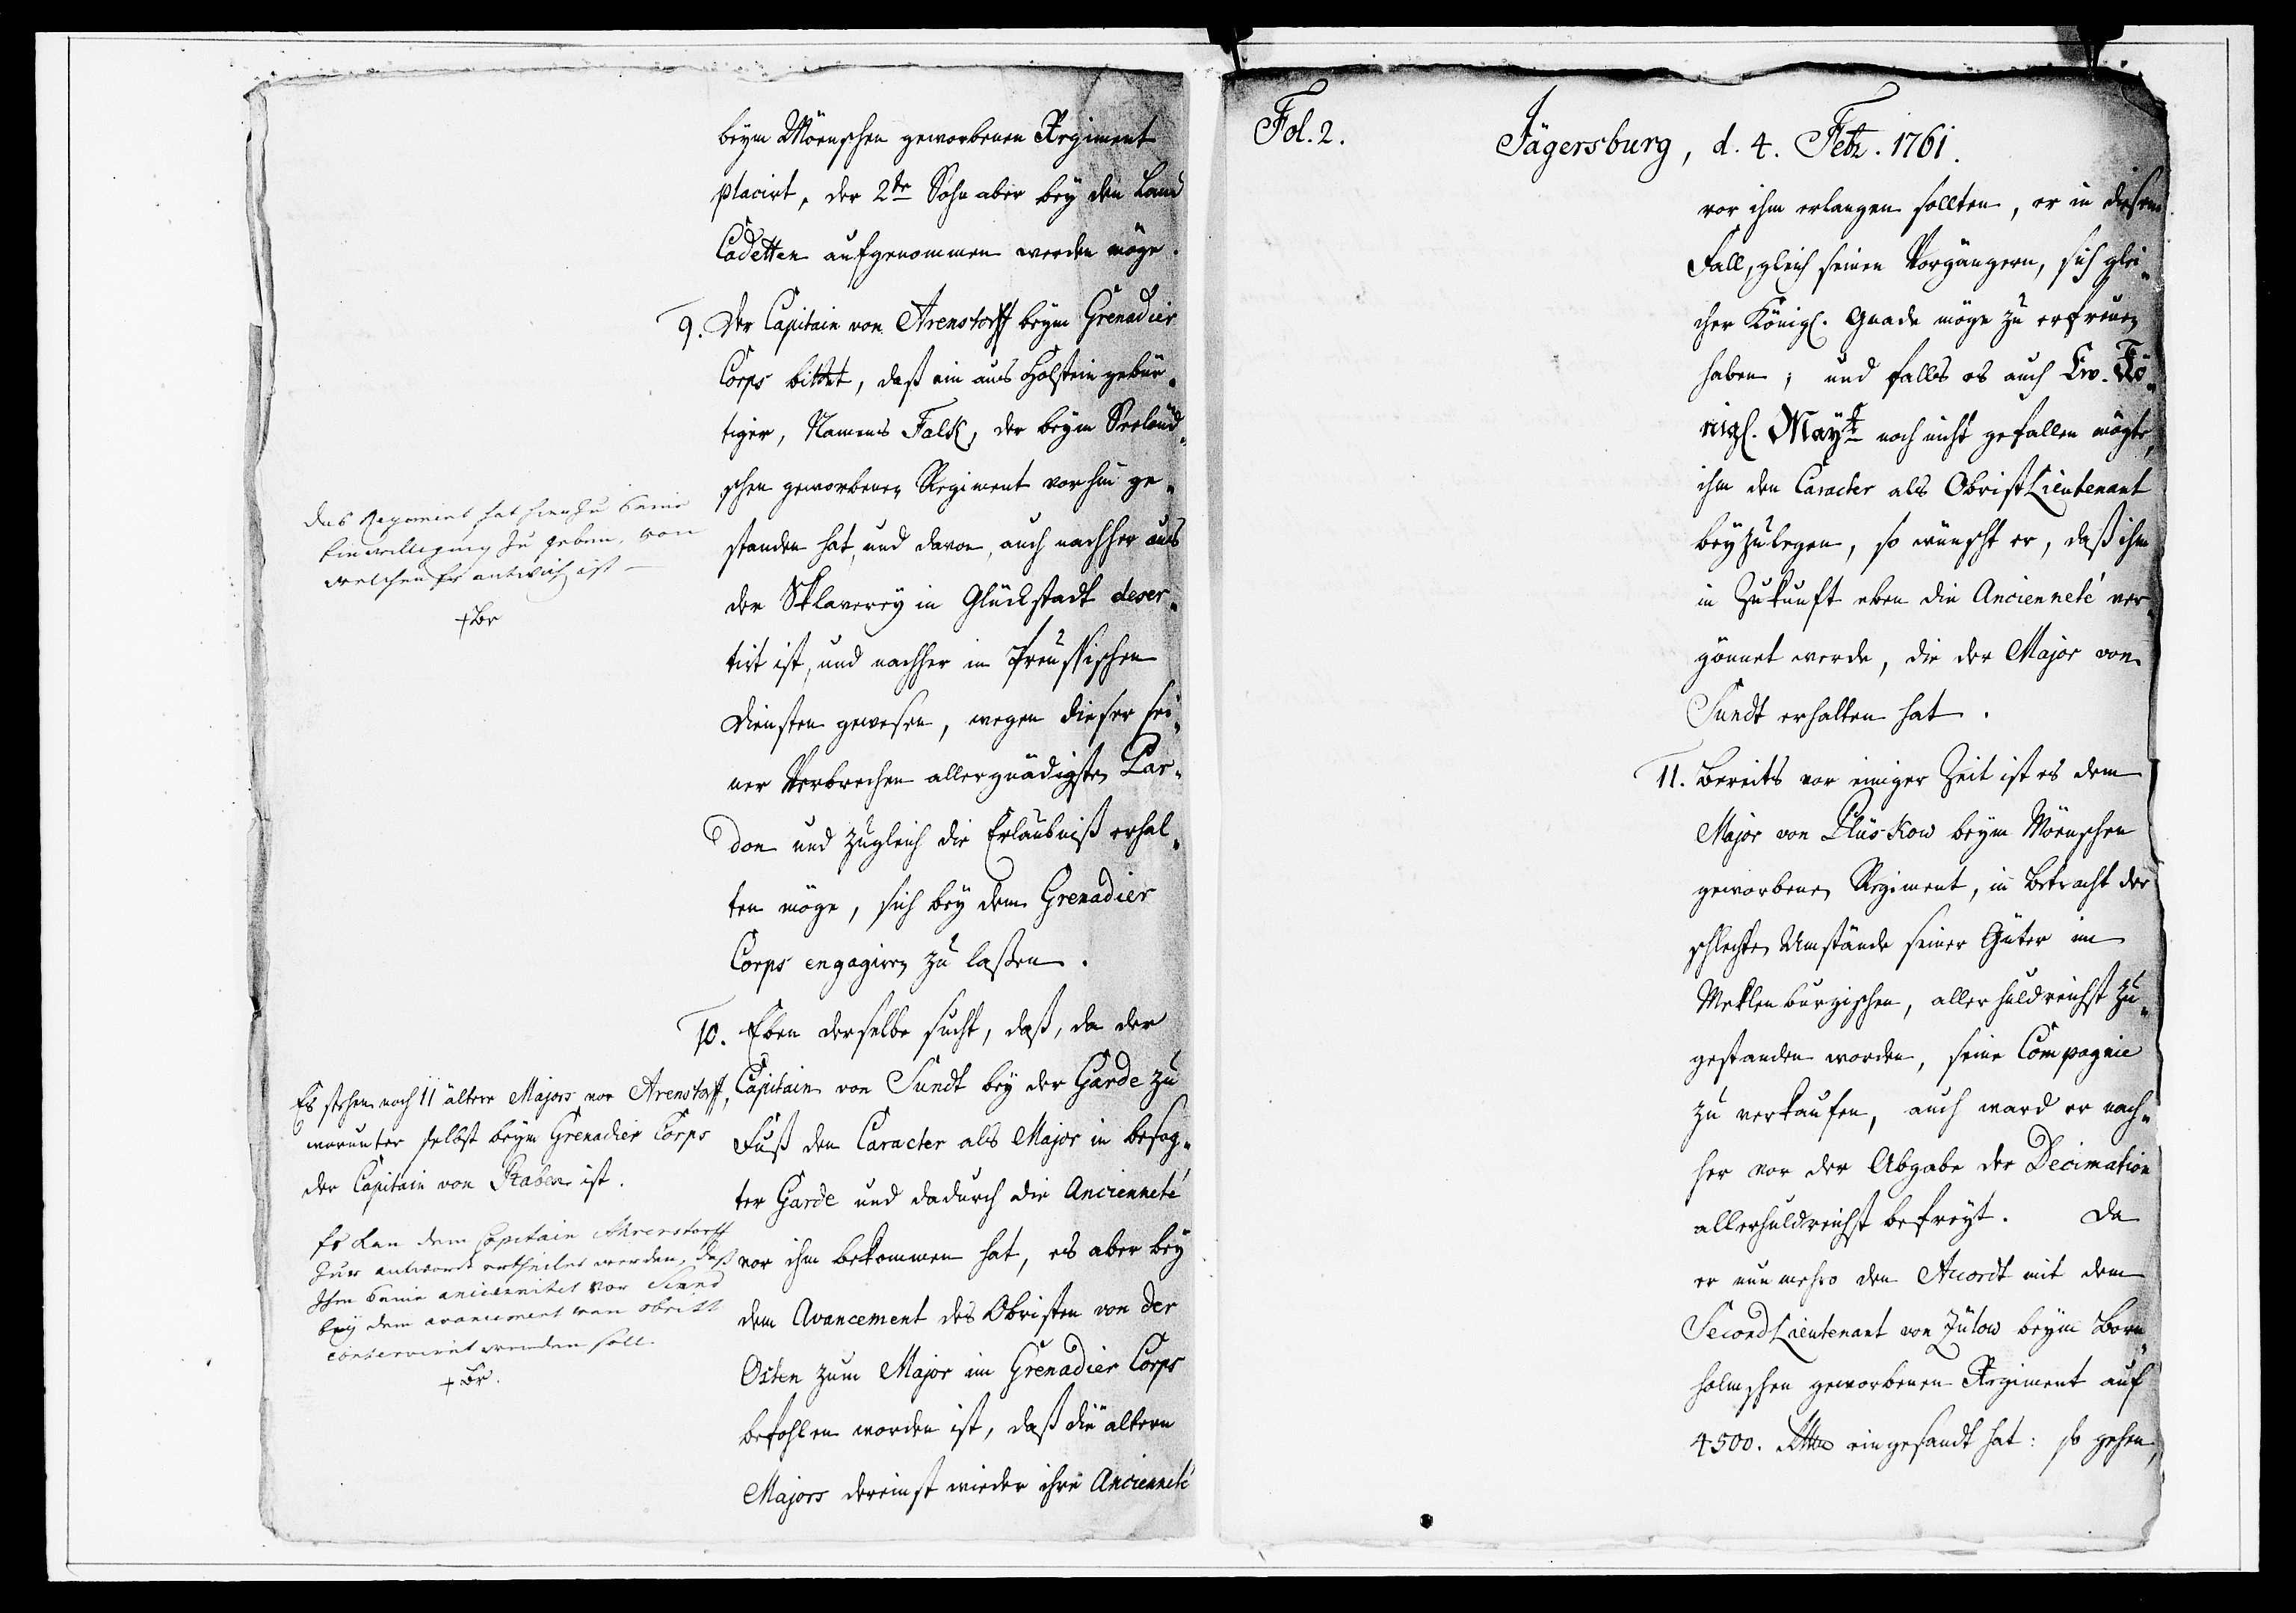 beym Möenschen geworbenen Regiment
placirt, der 2te Sohn aber bey den Land
Cadetten aufgenommen werden möge.
9. Der Capitain von Arenstorff beym Grenadier
Corps bittet, daß ein aus Holstein gebür-
tiger, Namens Falk, der beym Seeländ-
schen geworbenen Regiment vorhin ge-
standen hat, und davon, auch nachher aus
der Sklaverey in Glückstadt deser-
tirt ist, und nachher in Preussischen
Diensten gewesen, wegen dieser sei-
ner Verbrechen allergnädigsten Par-
don und zugleich die Erlaubniß erhal-
ten möge, sich bey dem Grenadier
Corps engagiren zu laßen.
das Regiment hat hiezu seine
Einwilligung zu geben, von
welchen Er entwich ist
10. Eben derselbe sucht, daß, da der
Capitain von Sundt bey der Garde zu
Fuß den Caracter als Major in besag-
ter Garde und dadurch die Ancienneté
vor ihm bekommen hat, es aber bey
dem Avancement des Obristen von der
Osten zum Major im Grenadier Corps
befohlen worden ist, daß die ältern
Majors dereinst wieder ihre Ancienneté
Es stehen noch 11 ältere Majors vor Arenstorff,
worunter selbst beym Grenadier Corps
der Capitain von Raben ist.
Es kan dem Capitain Ahrenstorff
zur antwordt ertheilet werden, daß
Ihm seine ancienitet vor Sund
bey dem avancement von obristl
conserviret werden soll
Fol. 2.
Jägersburg, d. 4. Febr. 1761.
vor ihm erlangen sollten, er in diesem
Fall, gleich seinen Vorgängern, sich glei-
cher Königl. Gnade möge zu erfreuen
haben; und falls es auch Ew. Kö-
nigl. Mayt noch nicht gefallen mögte,
ihm den Caracter als ObristLieutenant
beyzulegen, so wünscht er, daß ihm
in Zukunft eben die Ancienneté ver-
gönnet werde, die der Major von
Sundt erhalten hat.
11. Bereits vor einiger Zeit ist es dem
Major von Plüskow beym Möenschen
geworbenen Regiment, in Betracht der
schlechten Umstände seiner Güter im
Meklenburgischen, allerhuldreichst zu-
gestanden worden, seine Compagnie
zu verkaufen, auch ward er nach-
her vor der Abgabe der Decimation
allerhuldreichst befreyt. Da
er nunmehro den Accordt mit dem
SecondLieutenant von Zülow beym Born-
holmschen geworbenen Regiment auf
4500. eingesandt hat: so gehen